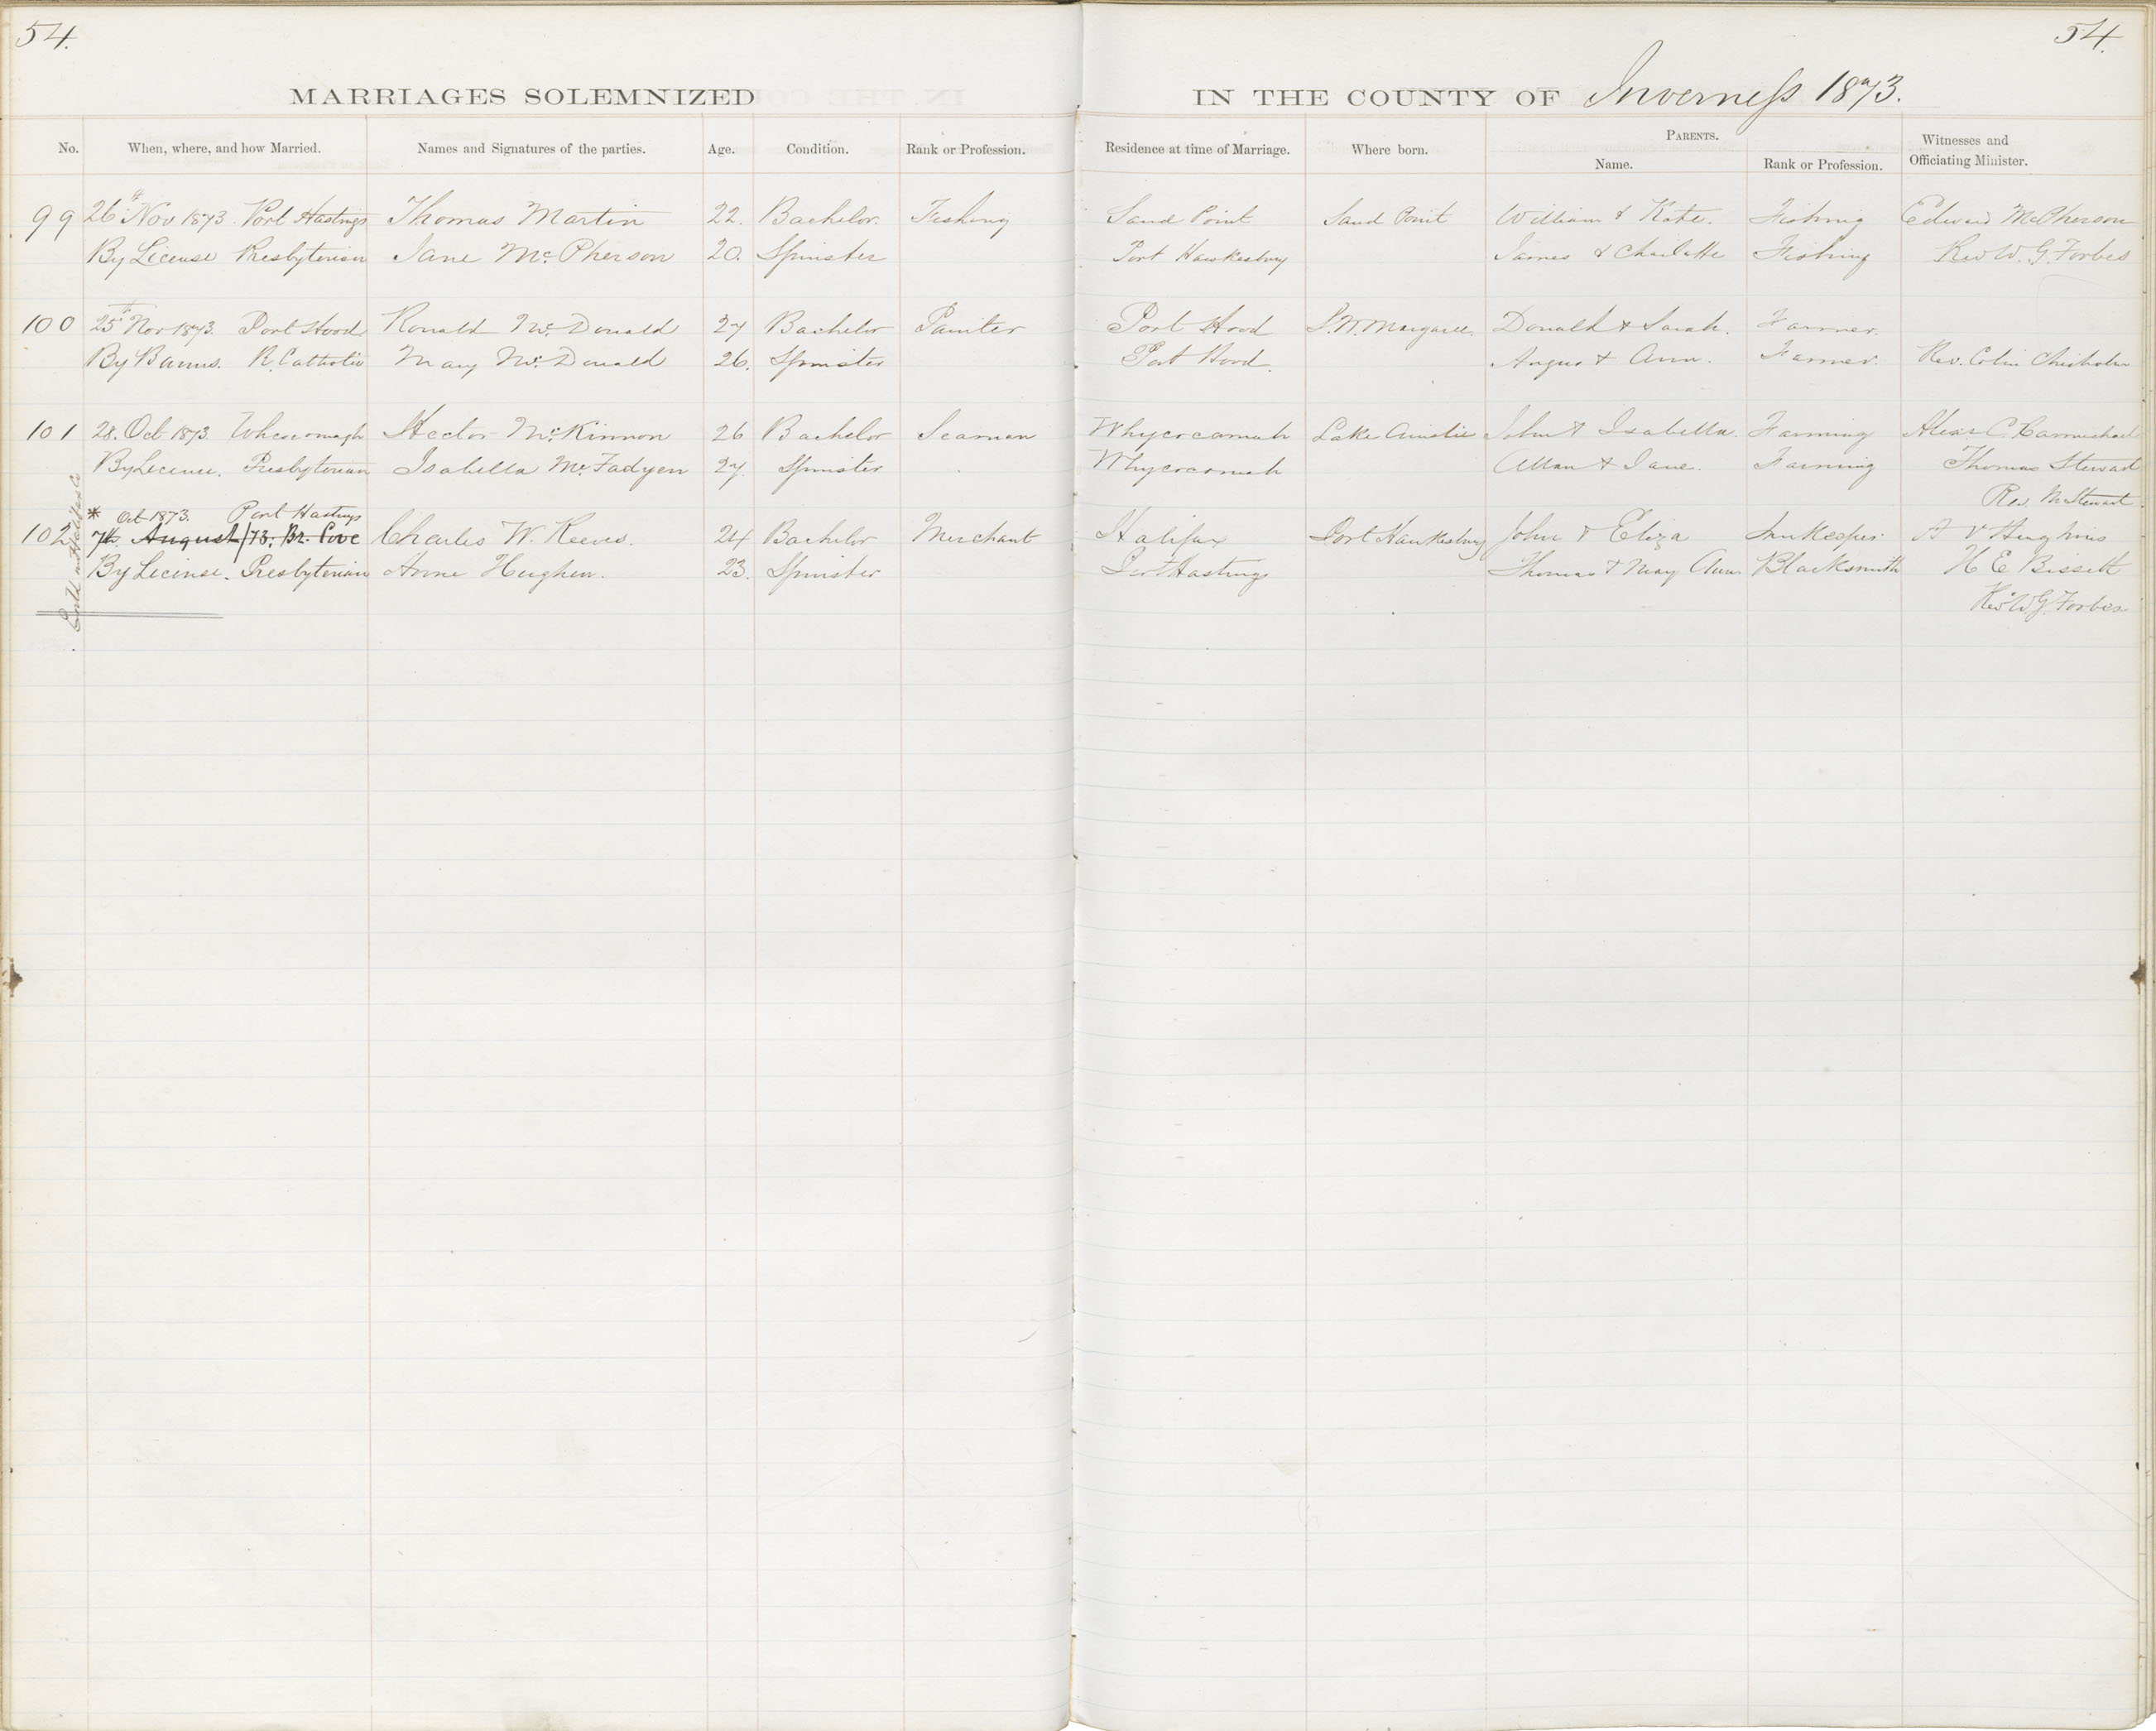 54.
54.
MARRIAGES SOLEMNIZED
IN THE COUNTY OF Inverness 1873.
No. When, where, and how Married. Names and Signatures of the parties. Age. Condition. Rank or Profession. Residence at time of Marriage. Where born. PARENTS. Name. Rank or Profession. Witnesses and Officiating Minister.
99 26th Nov 1873. Port Hastings Thomas Martin 22. Bachelor. Fishing Sand Point Sand Point William & Kate. Fishing Edward McPherson
By License Presbyterian Jane McPherson 20. Spinster Port Hawkesbury James & Charlotte Fishing Rev W. G. Forbes
100 25th Nov 1873. Port Hood Ronald McDonald 27 Bachelor Painter Port Hood S.W. Margaree Donald & Sarah. Farmer.
By Banns. R. Catholic Mary McDonald 26. Spinster Port Hood. Angus & Ann. Farmer. Rev. Colin Chisholm
101 28. Oct 1873. Whycocomagh Hector McKinnon 26 Bachelor Seaman Whycocomah Lake Ainslie John & Isabella. Farming Alexr C. Carmichael
By Licence. Presbyterian Isabella McFadyen 27. Spinster Whycocomah Allan & Jane. Farming Thomas Stewart
Rev. M Stewart
* Oct 1873. Port Hastings
102 7th August/73. Br. Cove Charles W. Reeves. 24 Bachelor Merchant Halifax Port Hawkesbury John & Eliza Innkeeper A V Hughins
By License. Presbyterian Anne Hughen. 23. Spinster Port Hastings Thomas & Mary Ann Blacksmith H E Bissett
Rev W G. Forbes